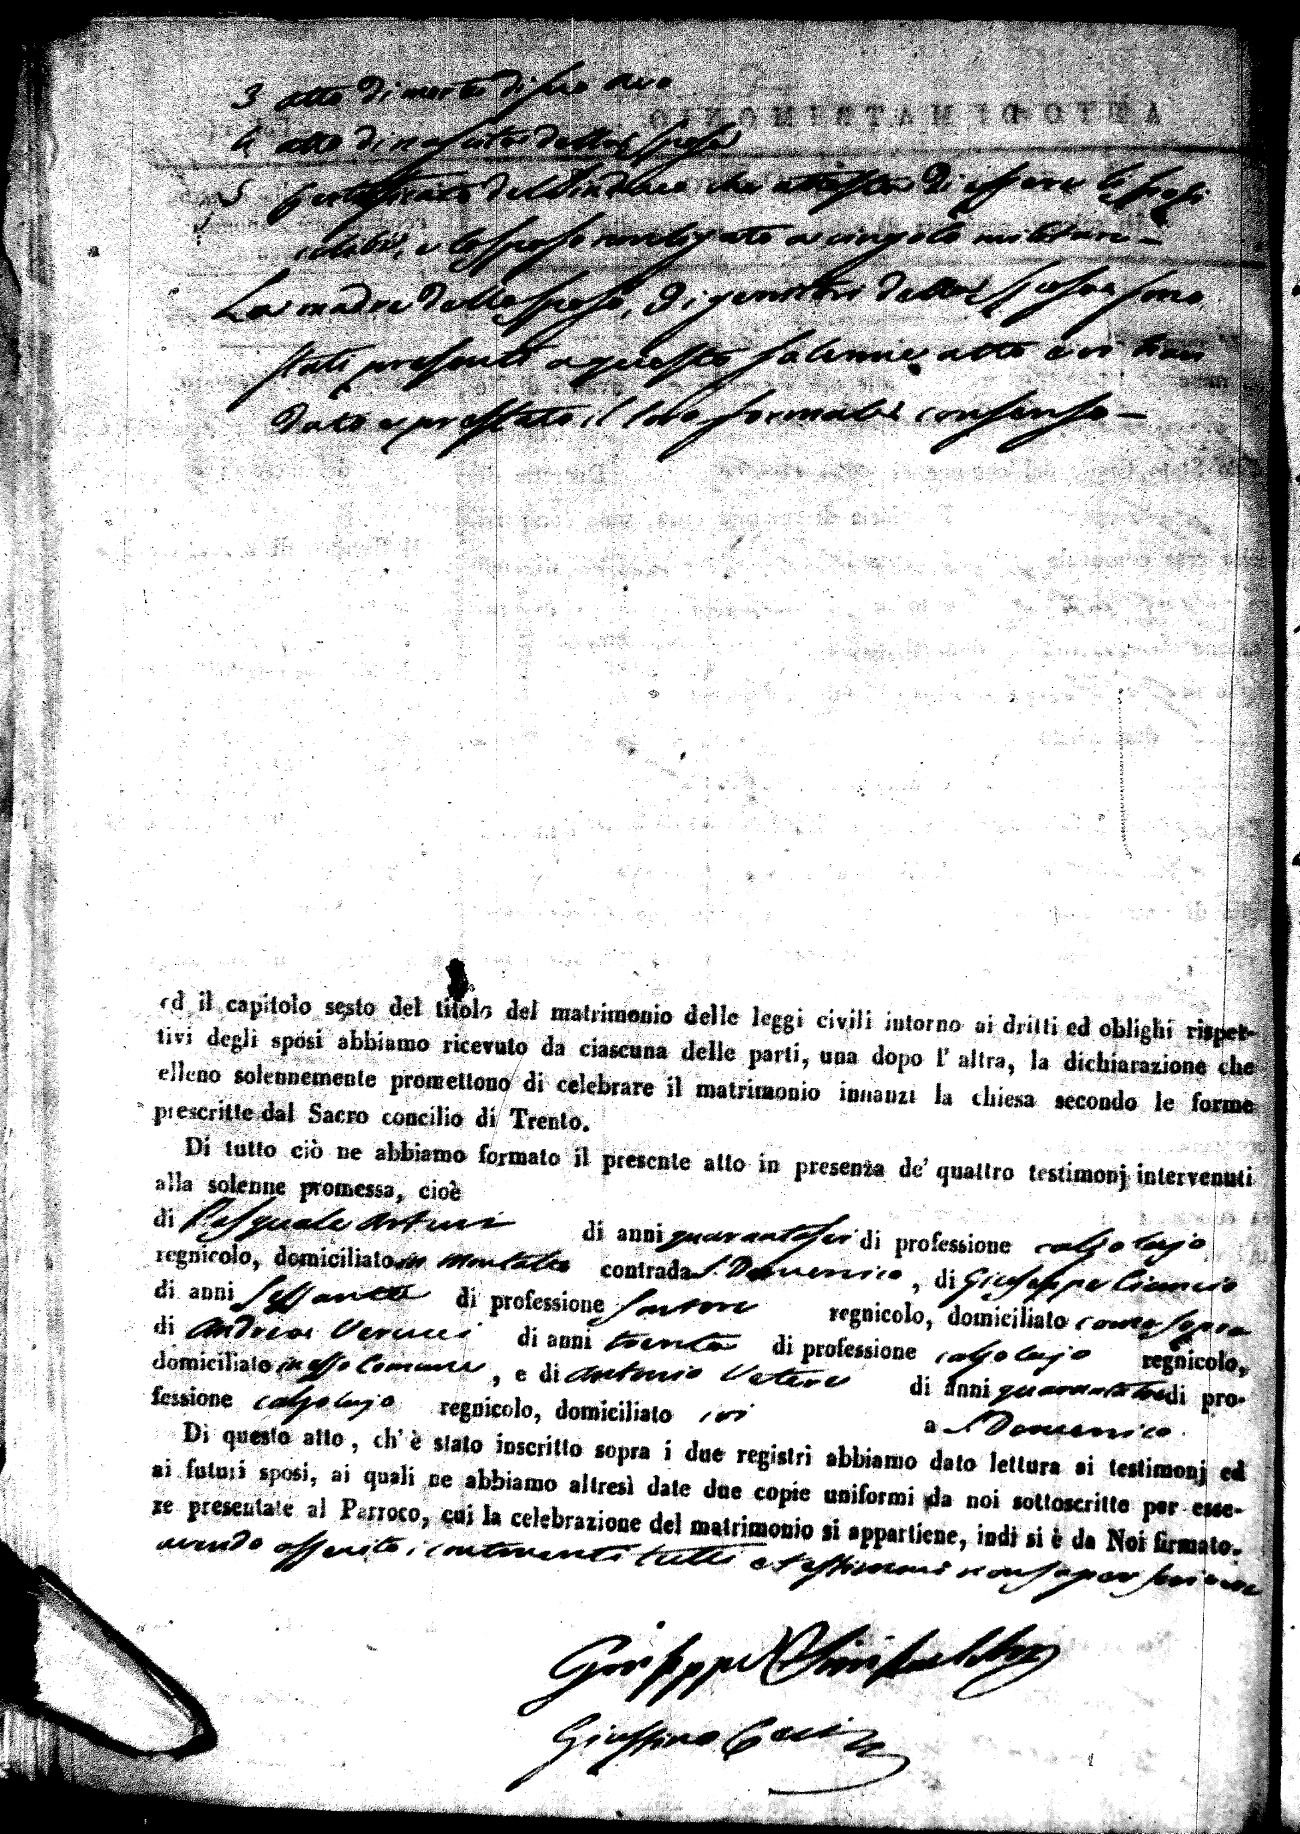 3 atto di morte di suo avo
4 atto di nascita della sposa
5 Certificato del Sindaco che attesta di essere li sposi
celibi, e lo sposo non obligato a cingolo militare —
La madre dello sposo, di genitori della sposa sono
stati presenti a questo solenne atto e vi han
dato e prestato il loro formale consenso —
ed il capitolo sesto del titolo del matrimonio delle leggi civili intorno ai dritti ed oblighi rispet-
tivi degli sposi abbiamo ricevuto da ciascuna delle parti, una dopo l' altra, la dichiarazione che
elleno solennemente promettono di celebrare il matrimonio innanzi la chiesa secondo le forme
prescritte dal Sacro concilio di Trento.
Di tutto ciò ne abbiamo formato il presente atto in presenza de' quattro testimonj intervenuti
alla solenne promessa, cioè
di Pasquale Arturi di anni quarantasei di professione calzolajo
regnicolo, domiciliato in Montalto contrada S. Domenico, di Giuseppe Ciancio
di anni Sessanta di professione Sartore regnicolo, domiciliato come sopra
di Andrea Verucci di anni trenta di professione calzolajo regnicolo,
domiciliato in esso Comune, e di Antonio Vetere di anni quarantatre di pro-
fessione calzolajo regnicolo, domiciliato ivi a S. Domenico.
Di questo atto, ch' è stato inscritto sopra i due registri abbiamo dato lettura ai testimonj ed
ai futuri sposi, ai quali ne abbiamo altresì date due copie uniformi da noi sottoscritte per esse-
re presentate al Parroco, cui la celebrazione del matrimonio si appartiene, indi si è da Noi firmato.
avendo asserito i contraenti tutti e testimoni non saper scrivere
Giuseppe